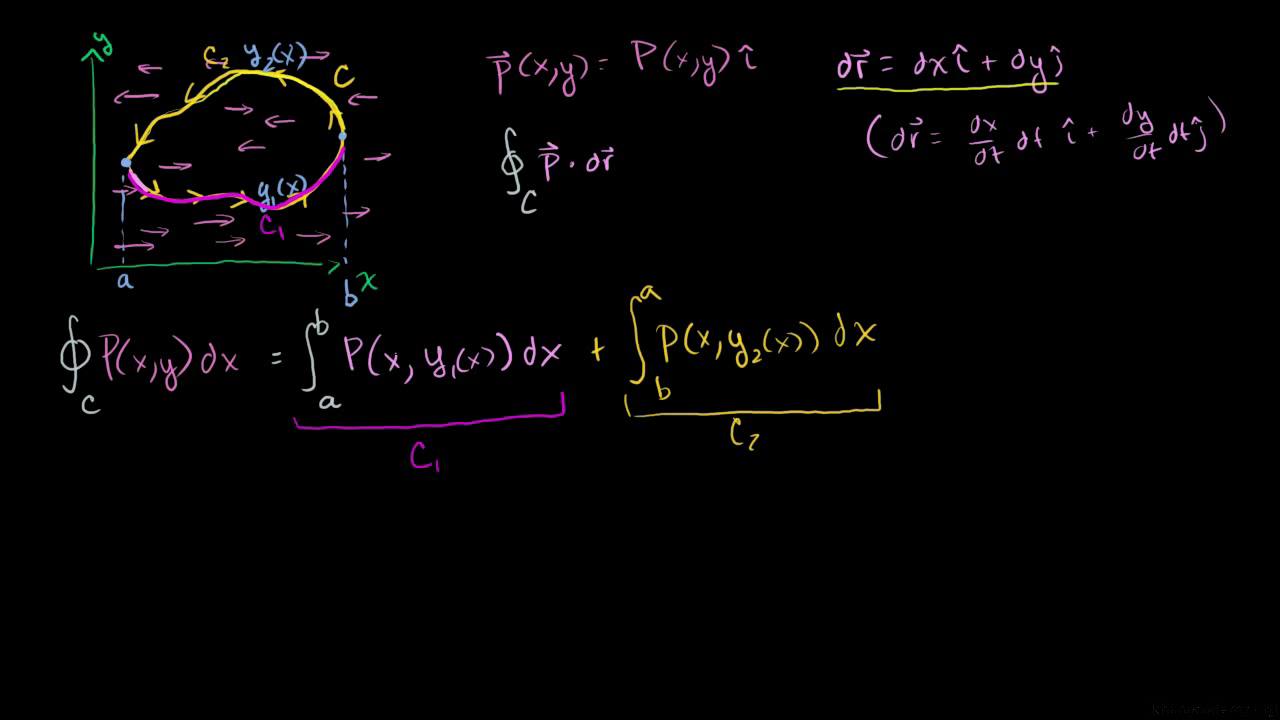 y
C₂ y₂(x)
C
y₁(x)
C₁
a
b
x
p⃗(x,y) = P(x,y) î
dr⃗ = dx î + dy ĵ
(dr⃗ = dx/dt dt î + dy/dt dt ĵ)
∮_C p⃗ · dr⃗
∮_C P(x,y) dx = ∫_a^b P(x, y₁(x)) dx + ∫_b^a P(x, y₂(x)) dx
C₁
C₂